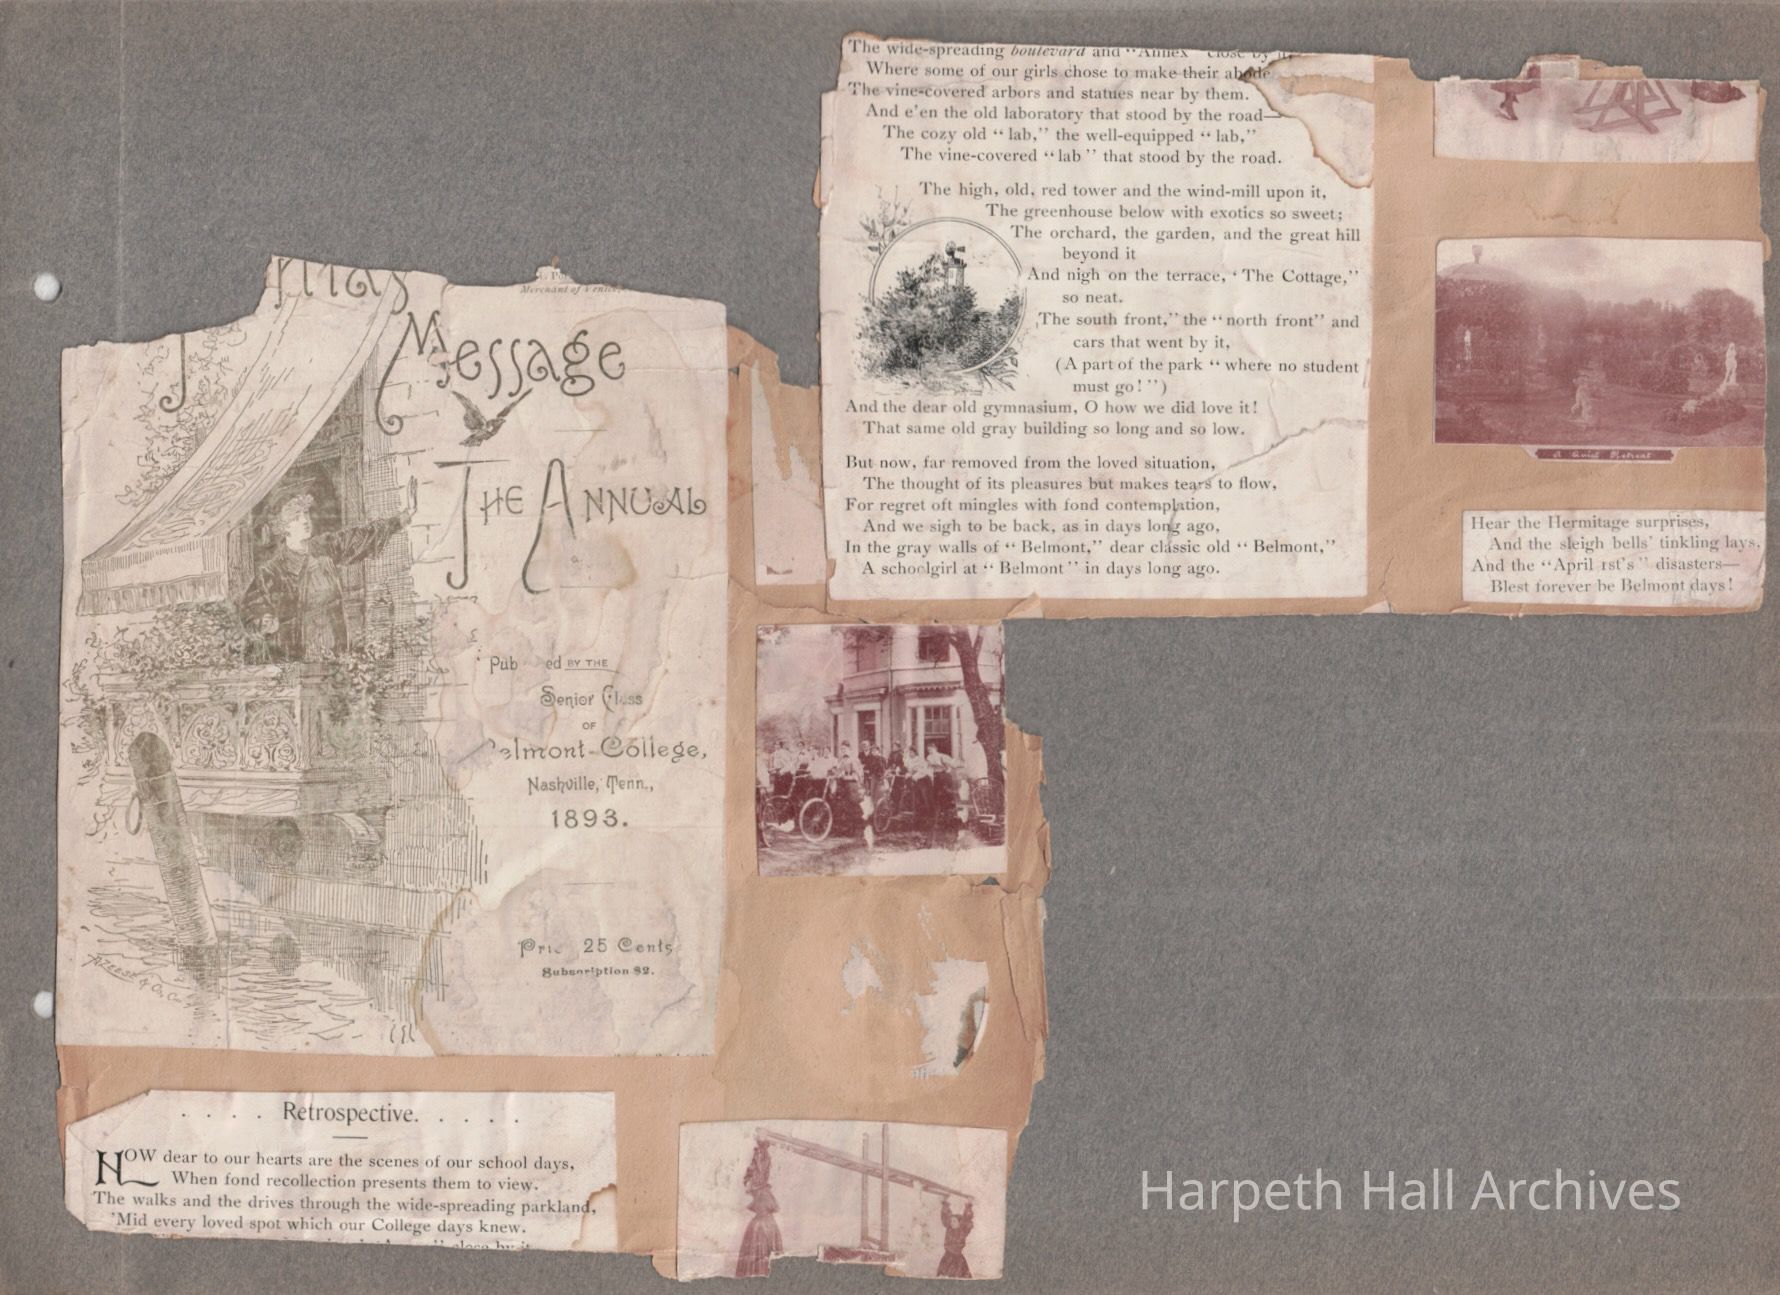 Message
THE ANNUAL
ed BY THE
Senior Class
OF
elmont College,
Nashville, Tenn.,
1893.
25 Cents
Subscription $2.
Merchant of Venice
. . . . Retrospective. . . . .
HOW dear to our hearts are the scenes of our school days,
When fond recollection presents them to view.
The walks and the drives through the wide-spreading parkland,
'Mid every loved spot which our College days knew.
close by it
The wide-spreading boulevard and "Annex" close by it,
Where some of our girls chose to make their abode
The vine-covered arbors and statues near by them.
And e'en the old laboratory that stood by the road—
The cozy old "lab," the well-equipped "lab,"
The vine-covered "lab" that stood by the road.
The high, old, red tower and the wind-mill upon it,
The greenhouse below with exotics so sweet;
The orchard, the garden, and the great hill
beyond it
And nigh on the terrace, 'The Cottage,"
so neat.
The south front," the "north front" and
cars that went by it,
(A part of the park "where no student
must go!")
And the dear old gymnasium, O how we did love it!
That same old gray building so long and so low.
But now, far removed from the loved situation,
The thought of its pleasures but makes tears to flow,
For regret oft mingles with fond contemplation,
And we sigh to be back, as in days long ago,
In the gray walls of "Belmont," dear classic old "Belmont,"
A schoolgirl at "Belmont" in days long ago.
A Quiet Retreat
Hear the Hermitage surprises,
And the sleigh bells' tinkling lays,
And the "April 1st's" disasters—
Blest forever be Belmont days!
Harpeth Hall Archives